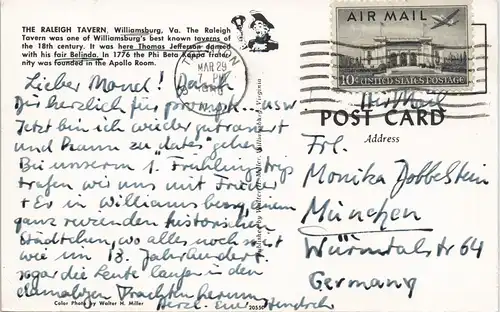 THE RALEIGH TAVERN, Williamsburg, Va. The Raleigh
Tavern was one of Williamsburg's best known taverns of
the 18th century. It was here Thomas Jefferson danced
with his fair Belinda. In 1776 the Phi Beta Kappa frater-
nity was founded in the Apollo Room.
Lieber Mond! Dank
Dir herzlich für prompt usw
Jetzt bin ich wieder
und kann zu "dates" gehen
Bei unserem 1. Frühlingstrip
trafen wir uns mit
+ Er in Williamsburg, einem
ganz reizenden historischen
Städtchen, wo alles noch ist
wie im 18. Jahrhundert.
sogar die Leute laufen in den
damaligen Trachten herum
Herzl. Eure
Color Photo by Walter H. Miller
20550
Williamsburg, Virginia
MAR 29
7 PM
AIR MAIL
10¢ UNITED STATES POSTAGE
Air Mail
POST CARD
Address
Frl.
Monika Dobbelstein
München
Würmtalstr 64
Germany